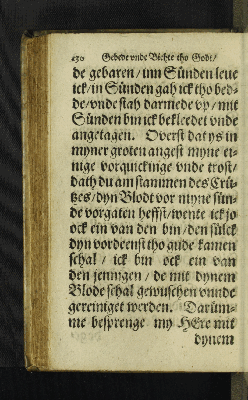 130 Gebede vnde Bichte tho Godt/
de gebaren/ inn Sünden leue
ick/ in Sünden gah ick tho bed-
de/ vnde stah darmede vp/ mit
Sünden bin ick bekleedet vnde
angetagen. Ouerst dat ys in
myner groten angest myne ei-
nige vorquickinge vnde trost/
dath du am stammen des Crü-
tzes/ dyn Blodt vor myne sün-
de vorgaten heffst/ wente ick jo
ock ein van den bin/ den sülck
dyn vordeenst tho gude kamen
schal/ ick bin ock ein van
den jennigen/ de mit dynem
Blode schal gewuschen vnnde
gereiniget werden. Darüm-
me besprenge my HEre mit
dynem